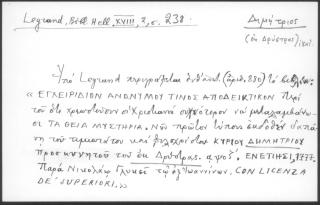 Legrand, Bibl. Hell. XVIII, 2, σ. 238.
Δημήτριος
(ἐκ Δρύστρας)
Ὑπὸ Legrand περιγράφεται (ἀριθ. 880) τὸ βιβλίον:
« ΕΓΧΕΙΡΙΔΙΟΝ ΑΝΩΝΥΜΟΥ ΤΙΝΟΣ ΑΠΟΔΕΙΚΤΙΚΟΝ Περὶ
τοῦ ὅτι χρεωστοῦσιν οἱ Χριστιανοὶ συχνότερον νὰ μεταλαμβάνω-
σι ΤΑ ΘΕΙΑ ΜΥΣΤΗΡΙΑ. Νῦν πρῶτον τύποις ἐκδοθὲν δαπά-
νῃ τοῦ τιμιωτάτου καὶ ΚΥΡΙΟΥ ΔΗΜΗΤΡΙΟΥ
Προσκυνητοῦ τοῦ ἐκ Δρύστρας. αψοζ. ΕΝΕΤΙΗΣΙ, 1777.
Παρὰ Νικολάῳ Γλυκεῖ τῷ ἐξ Ἰωαννίνων. CON LICENZA
DE' SUPERIORI.»